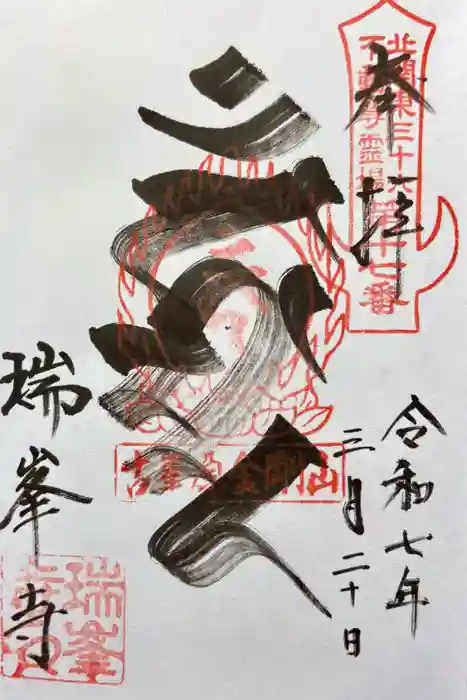 奉拝
北関東三十六
不動尊霊場第十七番
令和七年
三月二十日
金剛山
瑞峯寺
瑞峯